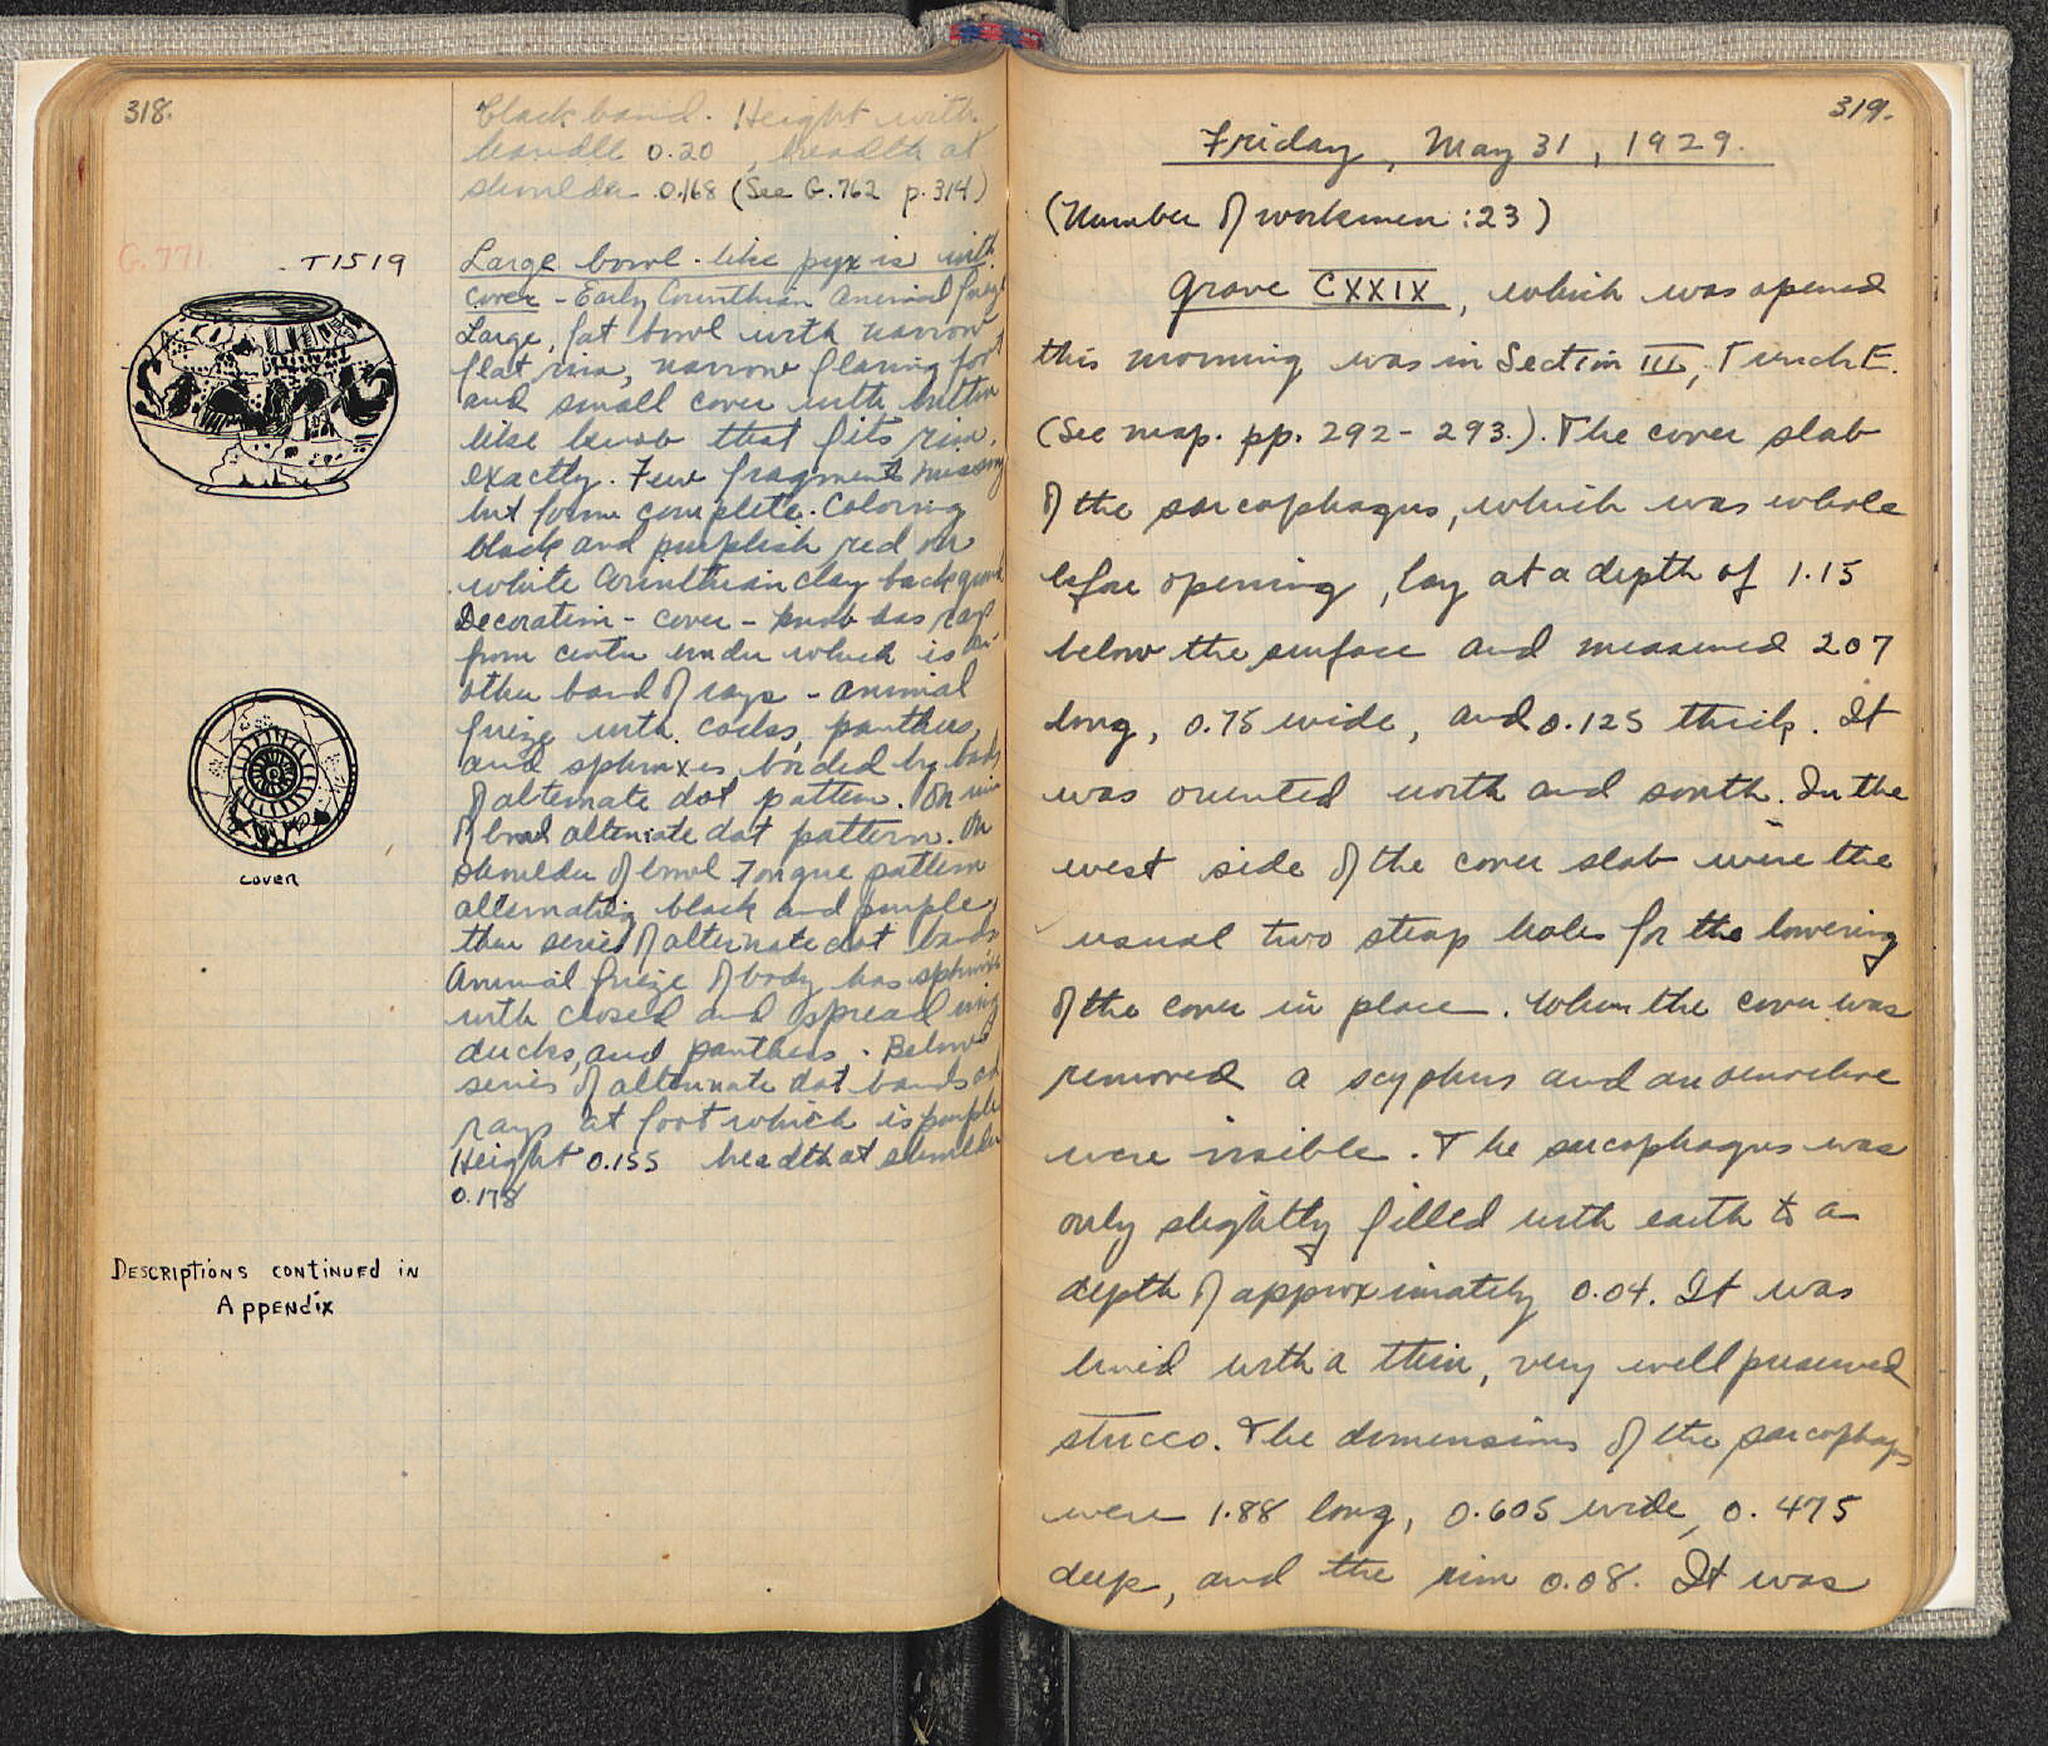 318.
black band. Height with
handle 0.20 , breadth at
shoulder 0.168 (See G.762 p.314)
G.771. T1519
Large bowl-like pyxis with
cover - Early Corinthian Animal frieze
Large, fat bowl with narrow
flat rim, narrow flaring foot
and small cover with button
like knob that fits rim
exactly. Few fragments missing
but form complete. Coloring
black and purplish red on
white Corinthian clay background
Decoration - cover - knob has rays
from center under which is an-
other band of rays - animal
frieze with cocks, panthers,
and sphinxes, borded by bands
of alternate dot pattern. On rim
of bowl alternate dot pattern. On
shoulder of bowl Tongue pattern
alternating black and purple,
then series of alternate dot bands
Animal frieze of body has sphinxes
with closed and spread wings
ducks, and panthers. Below
series of alternate dot bands and
rays at foot which is purple
Height 0.155 breadth at shoulder
0.178
cover
Descriptions continued in
Appendix
319.
Friday, May 31, 1929.
(Number of workmen: 23)
Grave CXXIX, which was opened
this morning was in Section III, Trench E.
(See map. pp. 292-293.). The cover slab
of the sarcophagus, which was whole
before opening, lay at a depth of 1.15
below the surface and measured 207
long, 0.75 wide, and 0.125 thick. It
was oriented north and south. In the
west side of the cover slab were the
usual two strap holes for the lowering
of the cover in place. When the cover was
removed a scyphus and an oenochoe
were visible. The sarcophagus was
only slightly filled with earth to a
depth of approximately 0.04. It was
lined with a thin, very well preserved
stucco. The dimensions of the sarcophagus
were 1.88 long, 0.605 wide, 0.475
deep, and the rim 0.08. It was